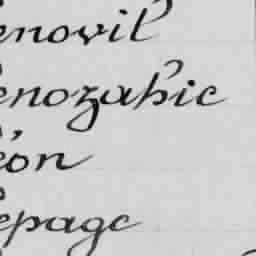 enovil
enozahic
éon
epage